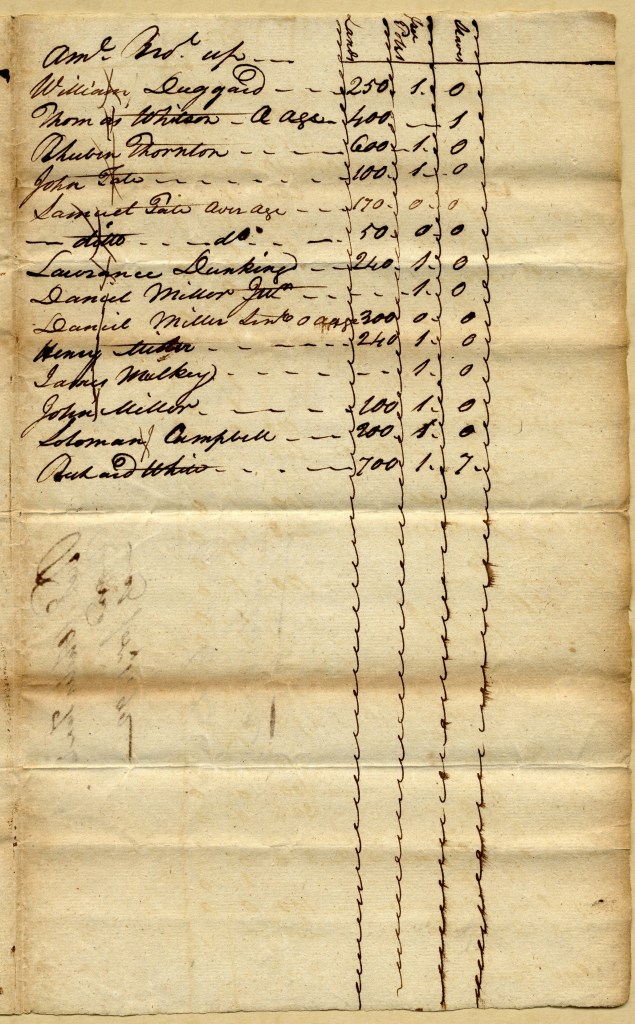 Lands free Poles slaves
Amt. Bro.t up —
William Duggard - - - 250. 1. 0
Thomas Whitson - O age - 400. — 1
Rhubin Thornton - - - - 600 - 1. 0
John Tate - - - - - - 100. 1. 0
Samuel Tate over age - - 170. 0. 0
— ditto - - - - do. - - 50. 0. 0
Lawrance Dunking - - 240. 1. 0
Daniel Miller Jun.r - - - - . 1. 0
Daniel Miller Sin.r O age 300 0. 0
Henry - - - - 240 1. 0
James Mulkey - - - - - - 1. 0
John Miller - - - - - 100 1. 0
Soloman Campbell - - - 200. 1. 0
Richard White - - - - 700 1. 7.